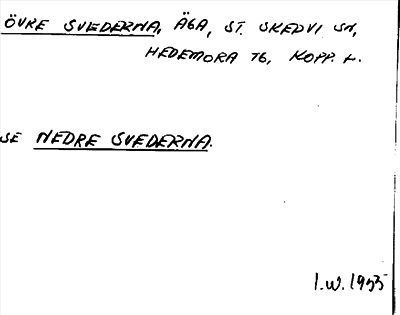 ÖVRE SVEDERNA, ÄGA, ST. SKEDVI SN,
HEDEMORA TG, KOPP. L.
SE NEDRE SVEDERNA.
I.W. 1935